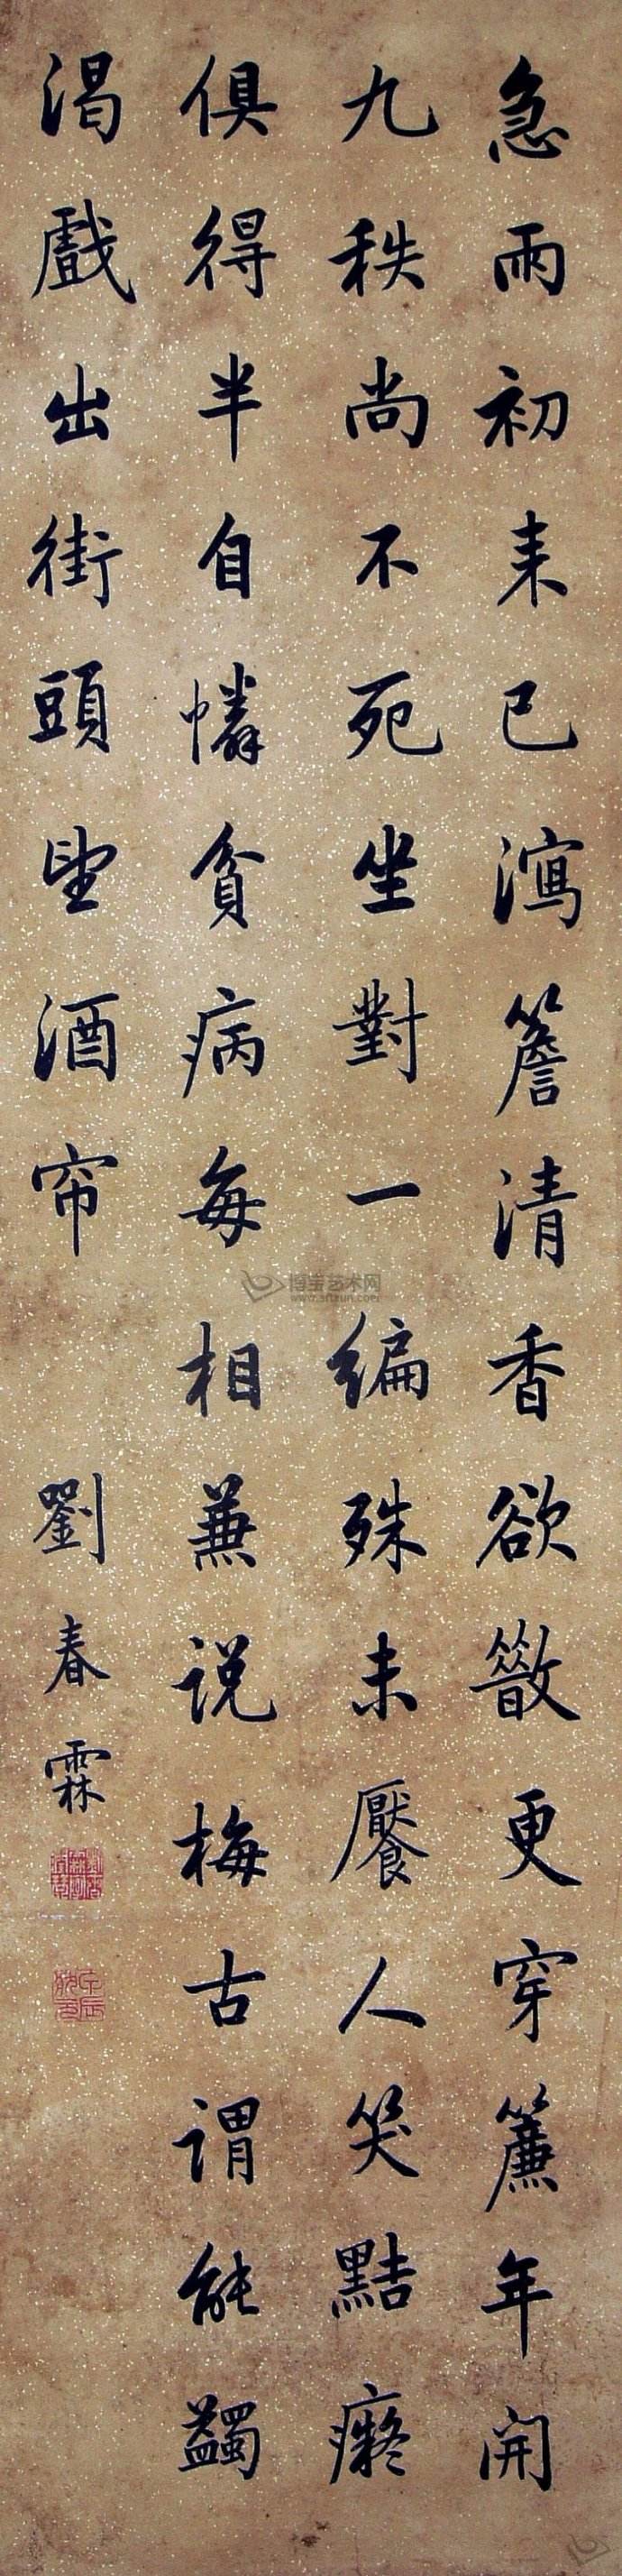 急雨初来已瀉簷清香欲散更穿簾年開
九秩尚不死坐對一編殊未饜人笑黠癡
俱得半自憐貧病每相兼説梅古謂能蠲
渴戲出街頭望酒帘
劉春霖
博宝艺术网
www.artxun.com